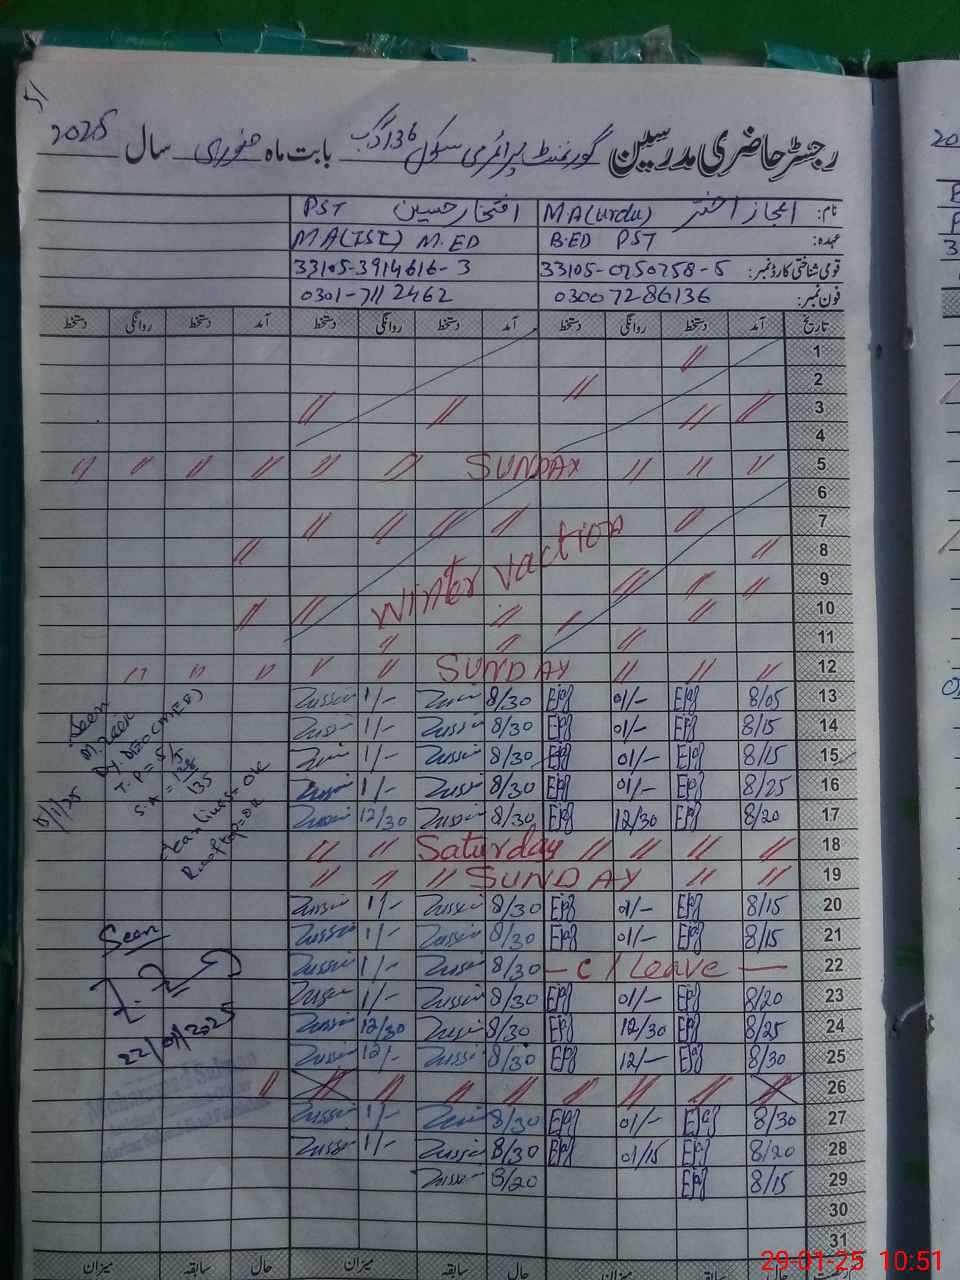 رجسٹر حاضری مدرسین گورنمنٹ پرائمری سکول 136 گ ب بابت ماہ جنوری سال 2025
نام: اعجاز اختر MA(urdu) افتخار حسین PST
عہدہ: B.ED PST MA(ISI) M.ED
قومی شناختی کارڈ نمبر: 33105-0250758-5 33105-3914616-3
فون نمبر: 03007286136 0301-7112462
تاریخ آمد دستخط روانگی دستخط آمد دستخط روانگی دستخط آمد دستخط روانگی دستخط
1
2
3
4
5 SUNDAY
6
7
8
Winter vaction
9
10
11
12 SUNDAY
13 8/05 Ejaz 01/- Ejaz 8/30 Hussain 1/- Hussain
14 8/15 Ejaz 01/- Ejaz 8/30 Hussain 1/- Hussain
15 8/15 Ejaz 01/- Ejaz 8/30 Hussain 1/- Hussain
16 8/25 Ejaz 01/- Ejaz 8/30 Hussain 1/- Hussain
17 8/20 Ejaz 12/30 Ejaz 8/30 Hussain 12/30 Hussain
18 Saturday
19 SUNDAY
20 8/15 Ejaz 01/- Ejaz 8/30 Hussain 1/- Hussain
21 8/15 Ejaz 01/- Ejaz 8/30 Hussain 1/- Hussain
22 — C/Leave — 8/30 Hussain 1/- Hussain
23 8/20 Ejaz 01/- Ejaz 8/30 Hussain 1/- Hussain
24 8/25 Ejaz 12/30 Ejaz 8/30 Hussain 12/30 Hussain
25 8/30 Ejaz 12/- Ejaz 8/30 Hussain 12/- Hussain
26
27 8/30 Ejaz 01/- Ejaz 8/30 Hussain 1/- Hussain
28 8/20 Ejaz 01/15 Ejaz 8/30 Hussain 1/- Hussain
29 8/15 Ejaz 8/20 Hussain
30
31
حال سابقہ میزان حال سابقہ میزان حال میزان
Seen
T.P = 5/5
S.A = 128/135
cleanliness = OK
Rooftop = OK
Seen
22/01/2025
29-01-25 10:51